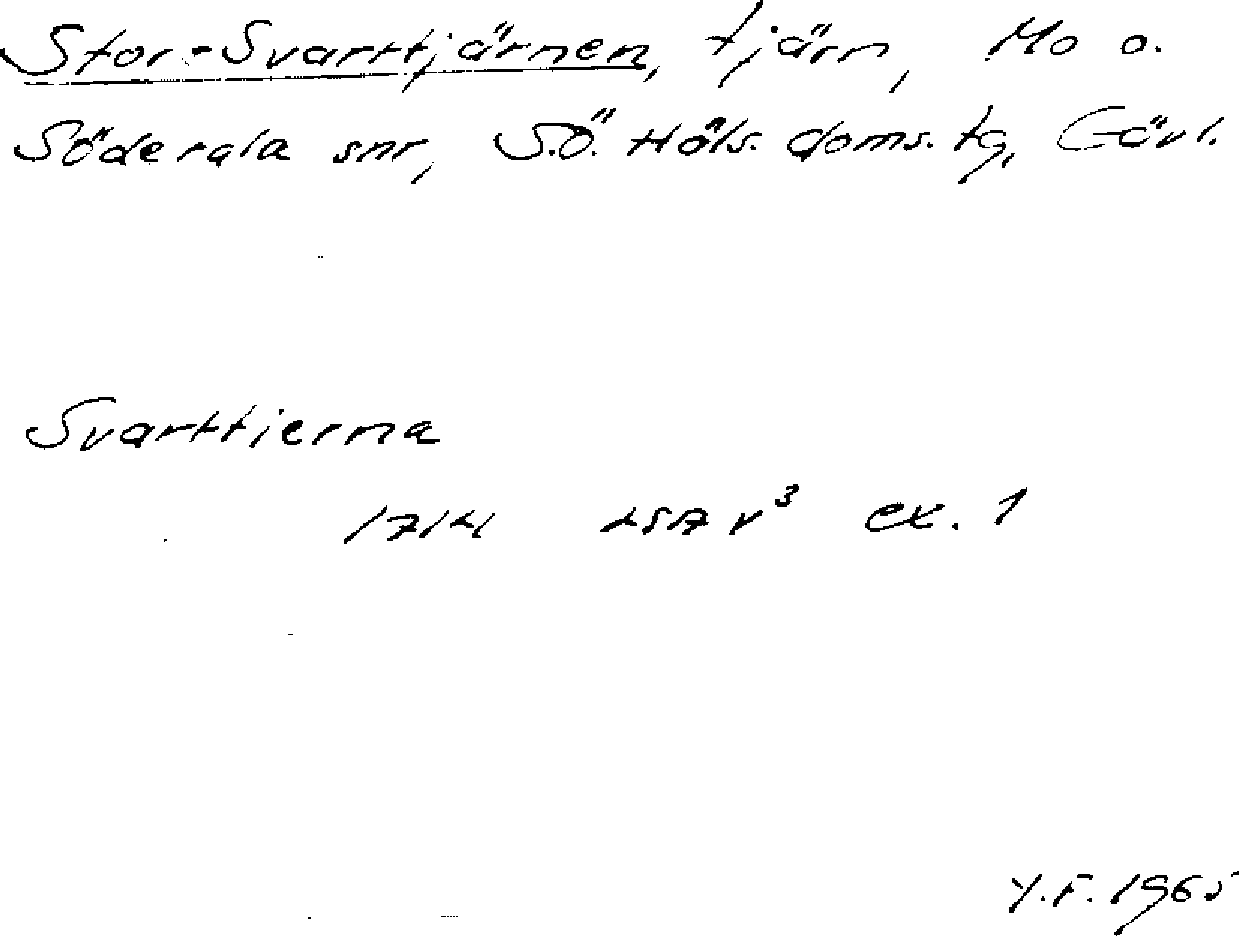 Stor-Svarttjärnen, tjärn, Mo o.
Söderala snr, S.Ö. Häls. doms. tg, Gävl.
Svarttierna
1714 LSA v³ ex. 1
Y.F. 1965